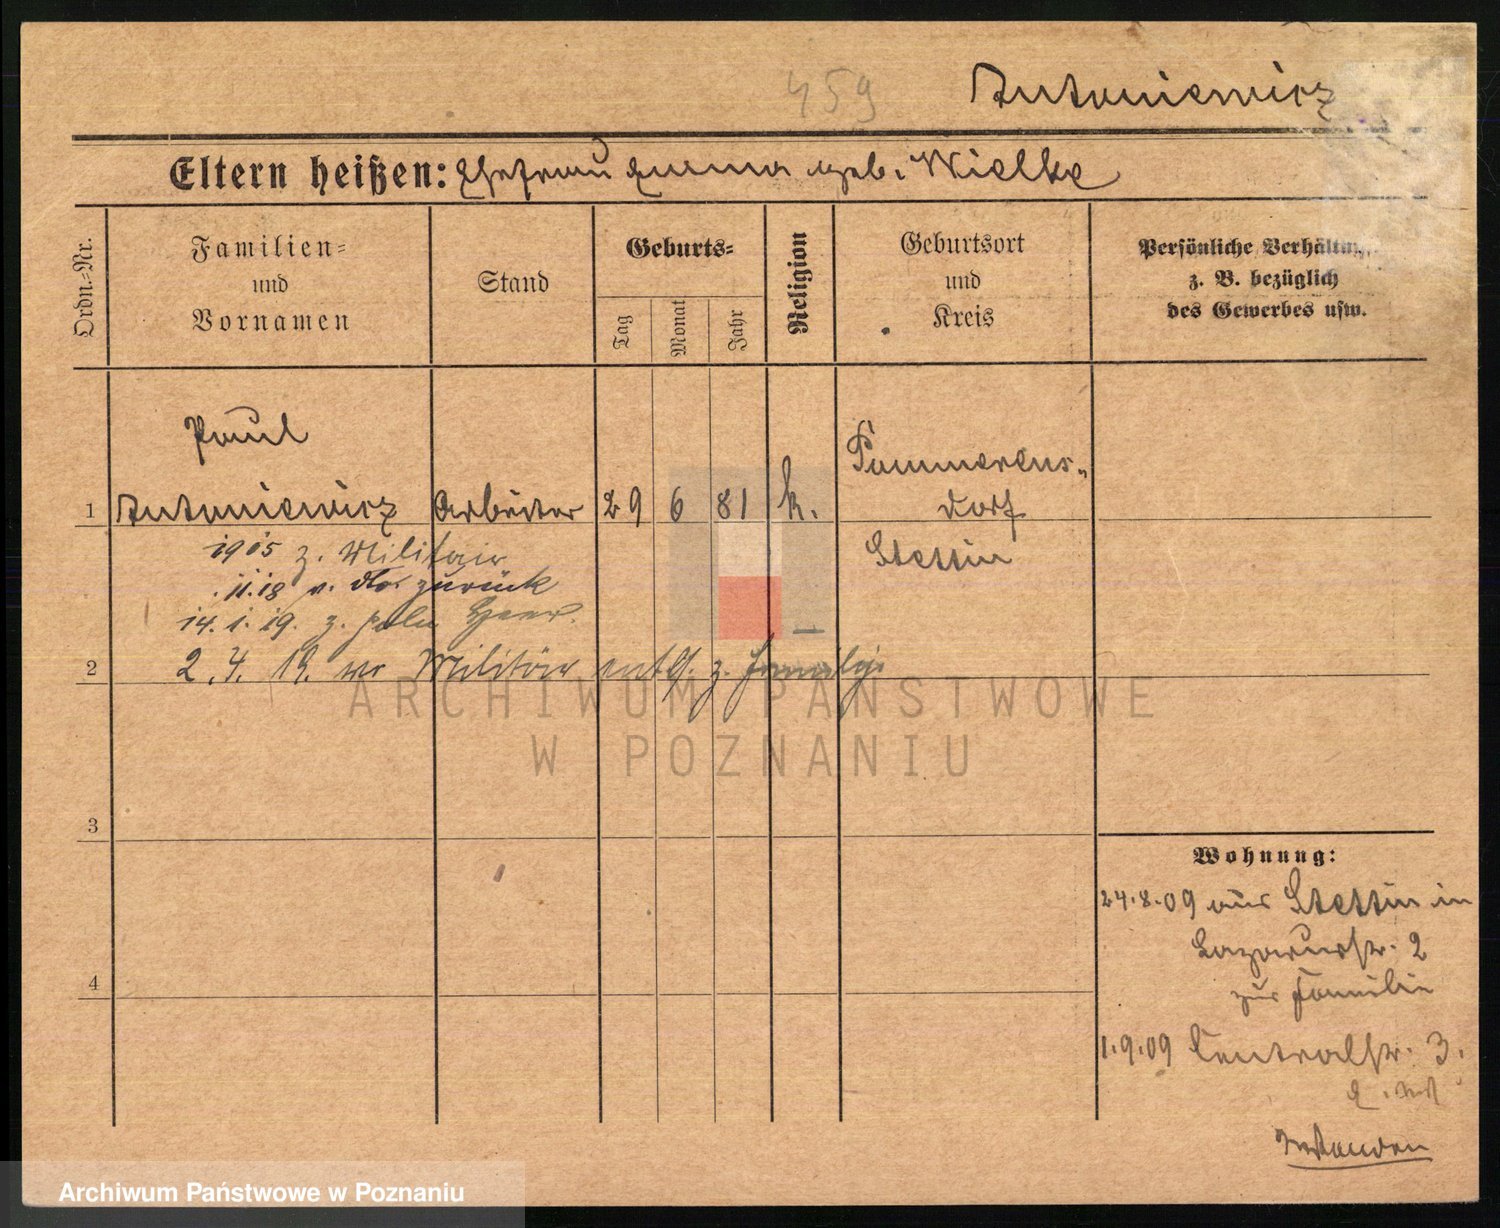 459
Antoniewicz
Eltern heißen: Ehefrau Emma geb. Wielke
Ordn.-Nr.
Familien-
und
Vornamen
Stand
Geburts-
Tag
Monat
Jahr
Religion
Geburtsort
und
Kreis
Persönliche Verhältn
z. B. bezüglich
des Gewerbes usw.
Paul
1 Antoniewicz Arbeiter 29 6 81 k. Pommerens-
dorf
Stettin
1915 z. Militair
11.18 v. zurück
14. 1. 19. z. poln Heer.
2 2. 4. 19. Militär entl. z. Familie
ARCHIWUM PAŃSTWOWE
W POZNANIU
3
4
Wohnung:
24.8.09 aus Stettin in
Lazarusstr. 2
zur Familie
1.9.09 Centralstr. 3.
Archiwum Państwowe w Poznaniu